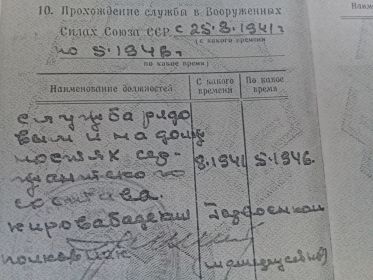 10. Прохождение службы в Вооруженных
Силах Союза ССР с 25.8.1941 г
(с какого времени
по 5.1946 г
по какое время)
Наименование должностей
С какого времени
По какое время
служба рядо
вым и на долж
ностях сер-
жантского
состава.
8.1941
5.1946.
Кировабадский Горвоенкомат